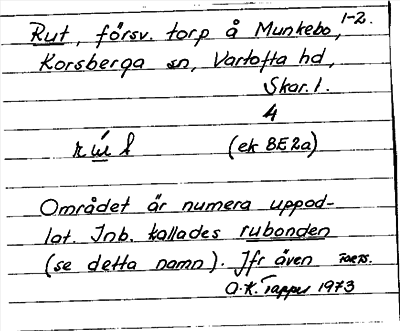 Rut, försv. torp å Munkebo, 1-2.
Korsberga sn, Vartofta hd,
Skar. l.
4
(ek BE2a)
Området är numera uppod-
lat. Inb. kallades rubonden
(se detta namn). Jfr även
O.K. Tapper 1973